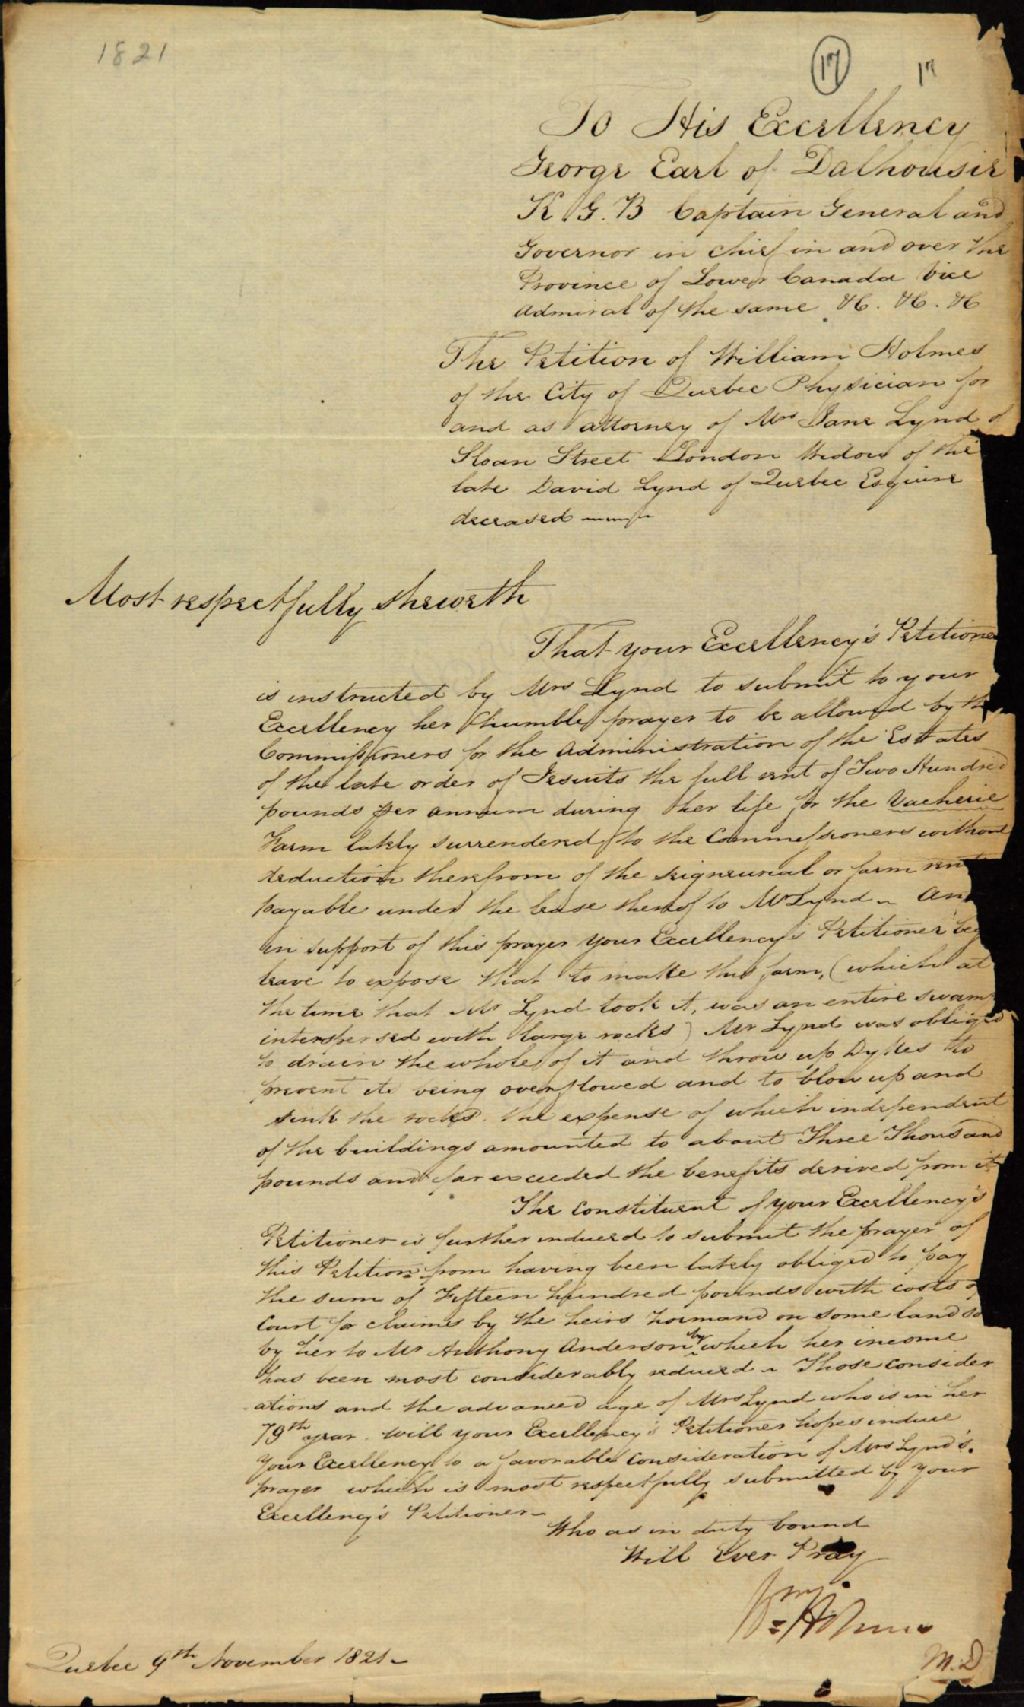 1821
17 17
To His Excellency
George Earl of Dalhousie
K G. B Captain General and
Governor in chief in and over the
Province of Lower Canada Vice
Admiral of the same &c. &c. &c
The Petition of William Holmes
of the City of Quebec Physician for
and as attorney of Mrs Jane Lynd of
Sloan Street London Widow of the
late David Lynd of Quebec Esquire
deceased
Most respectfully sheweth
That your Excellency's Petitioner
is instructed by Mrs Lynd to submit to your
Excellency her humble prayer to be allowed by the
Commissioners for the Administration of the Estates
of the late order of Jesuits the full rent of Two Hundred
pounds per annum during her life for the Vacherie
Farm lately surrendered to the Commissioners without
deduction therefrom of the seigneurial or farm rent
payable under the lease thereof to Mr Lynd - And
in support of this prayer your Excellency's Petitioner beg
leave to expose that to make this farm, (which at
the time that Mr Lynd took it, was an entire swamp
interspersed with large rocks) Mr Lynd was obliged
to drain the whole of it and throw up Dykes to
prevent its being overflowed and to blow up and
sink the rocks. the expense of which independent
of the buildings amounted to about Three Thousand
pounds and far exceeded the benefits derived from it
The constituent of your Excellency's
Petitioner is further induced to submit the prayer of
this Petition from having been lately obliged to pay
the sum of Fifteen hundred pounds with costs of
Court for claims by the heirs Normand on some land so
by her to Mr Anthony Anderson by which her income
has been most considerably reduced - Those consider
ations and the advanced age of Mrs Lynd who is in her
79th year. will your Excellency's Petitioner hopes induce
your Excellency to a favorable consideration of Mrs Lynd's
prayer which is most respectfully submitted by your
Excellency's Petitioner -
Who as in duty bound
Will Ever Pray
Wm Holmes
M.D
Quebec 9th November 1821 -